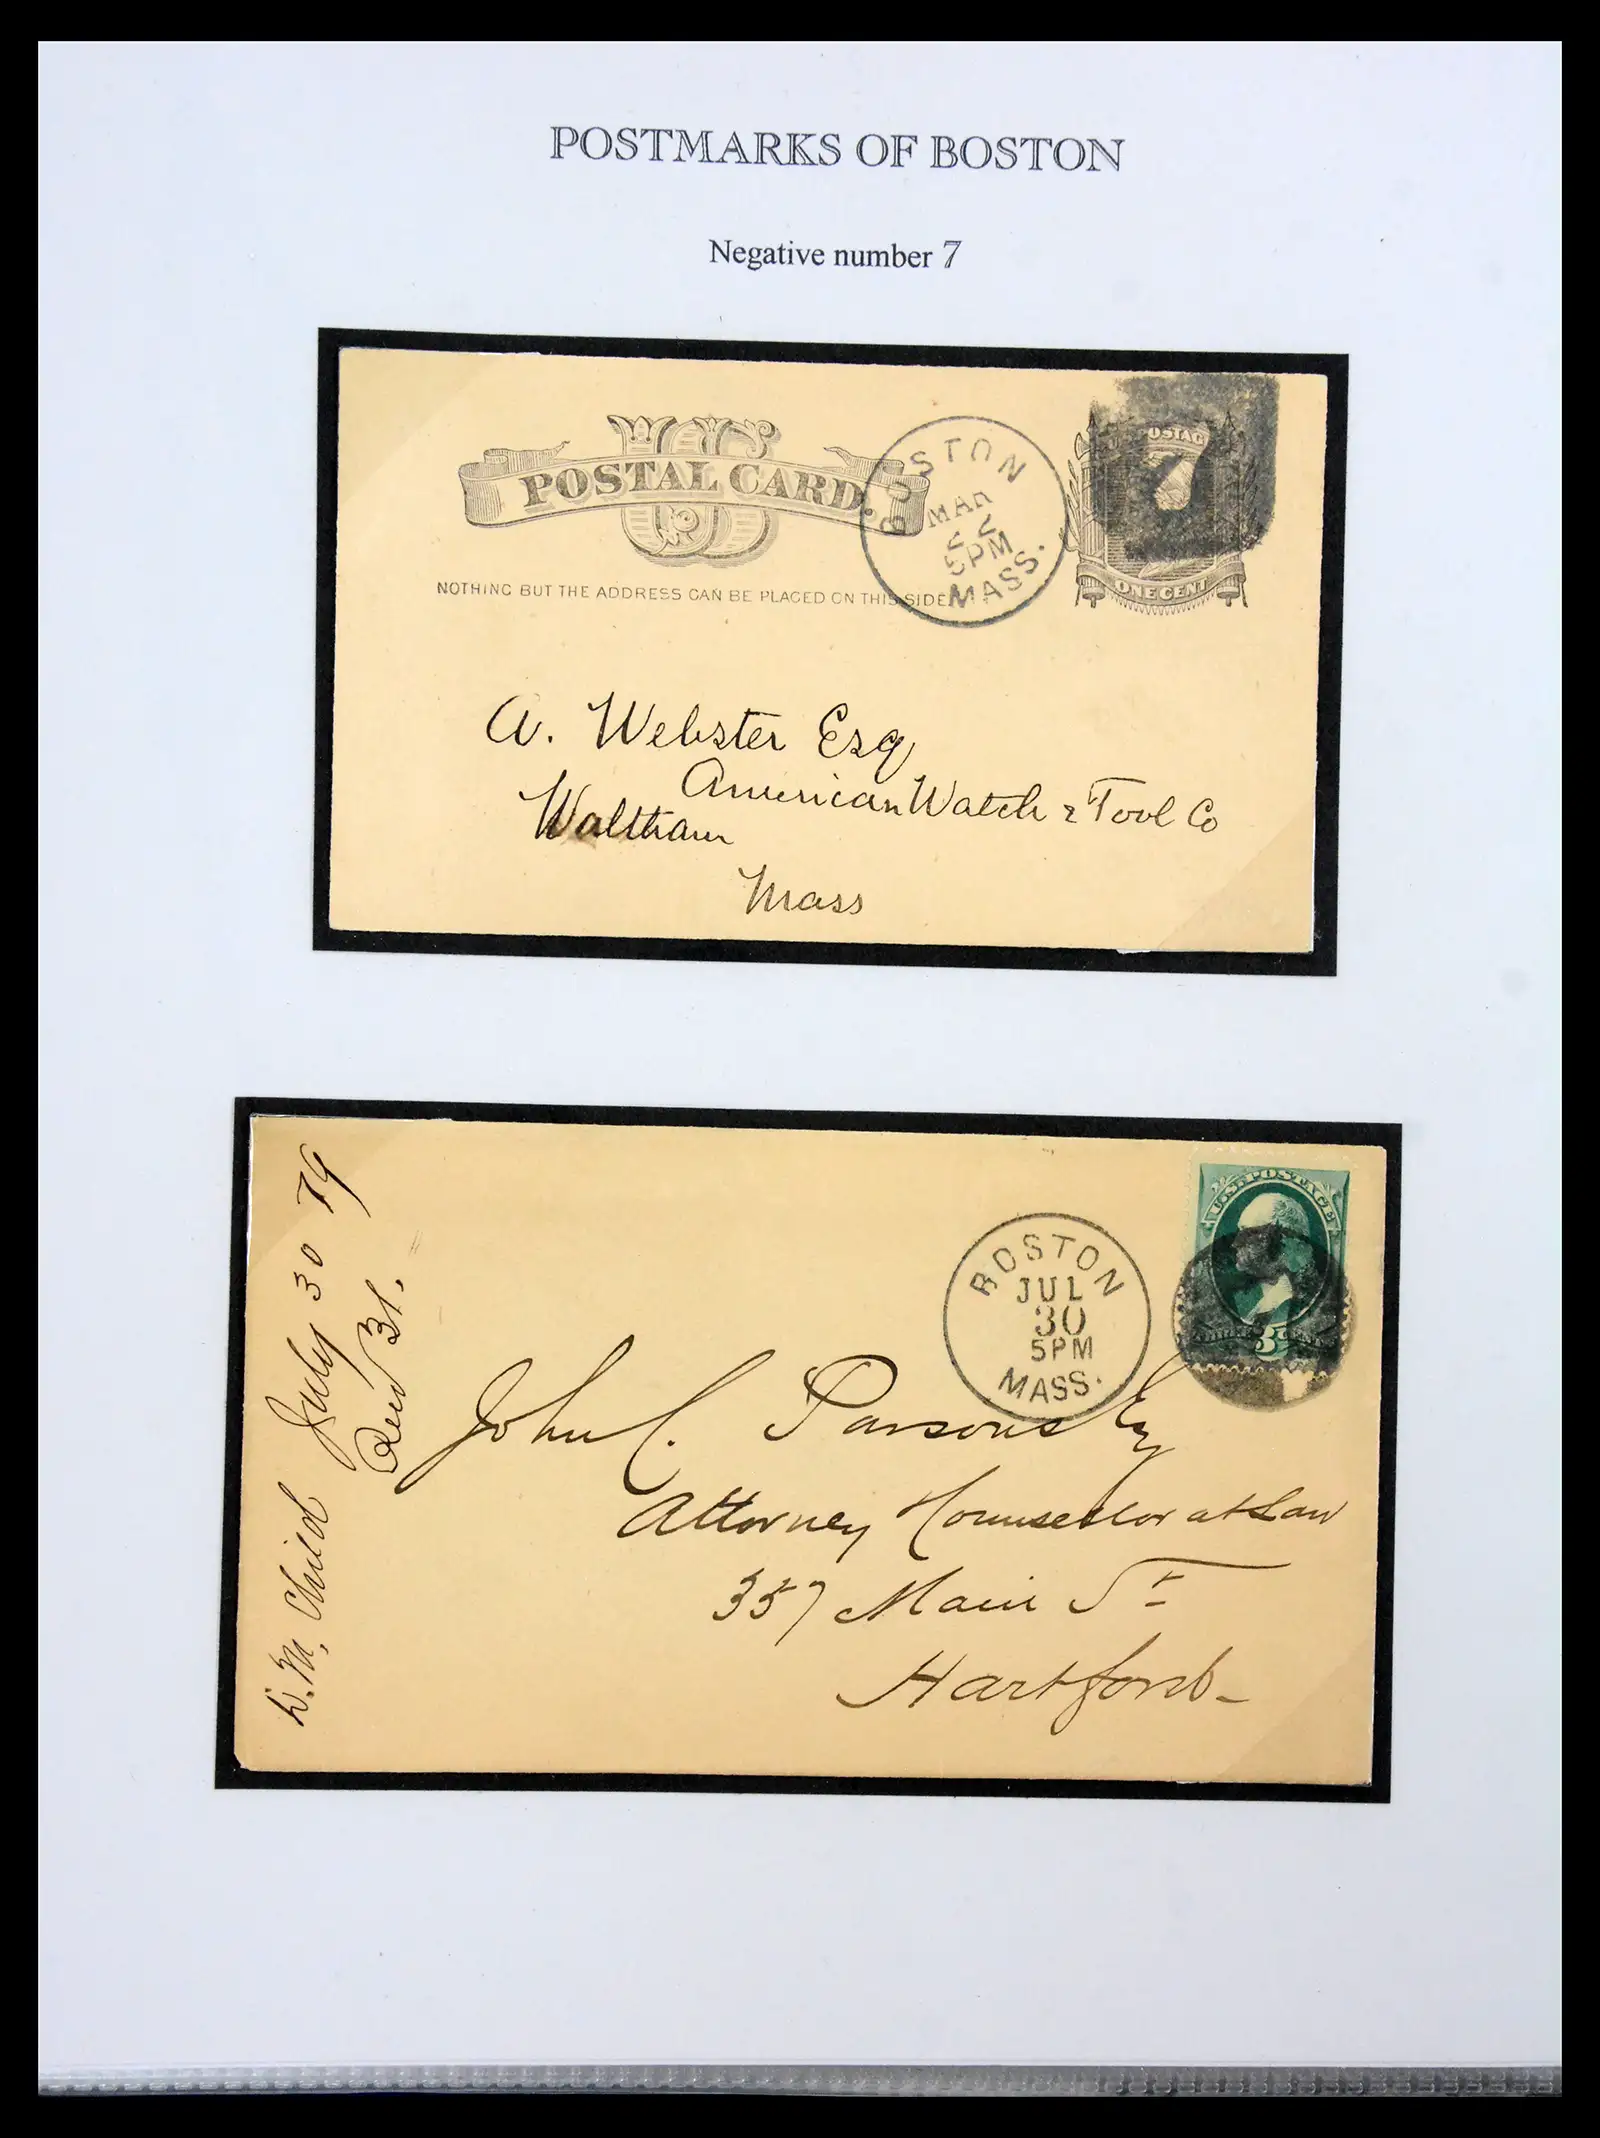 POSTMARKS OF BOSTON
Negative number 7
US
POSTAL CARD.
NOTHING BUT THE ADDRESS CAN BE PLACED ON THIS SIDE
BOSTON
MAR
22
5PM
MASS.
U.S. POSTAGE
7
ONE CENT
A. Webster Esq
American Watch & Tool Co
Waltham
Mass
L. M. Child
July 30 79
BOSTON
JUL
30
5PM
MASS.
U.S. POSTAGE
3
John C. Parsons Esq
Attorney & Counsellor at Law
357 Main St
Hartford